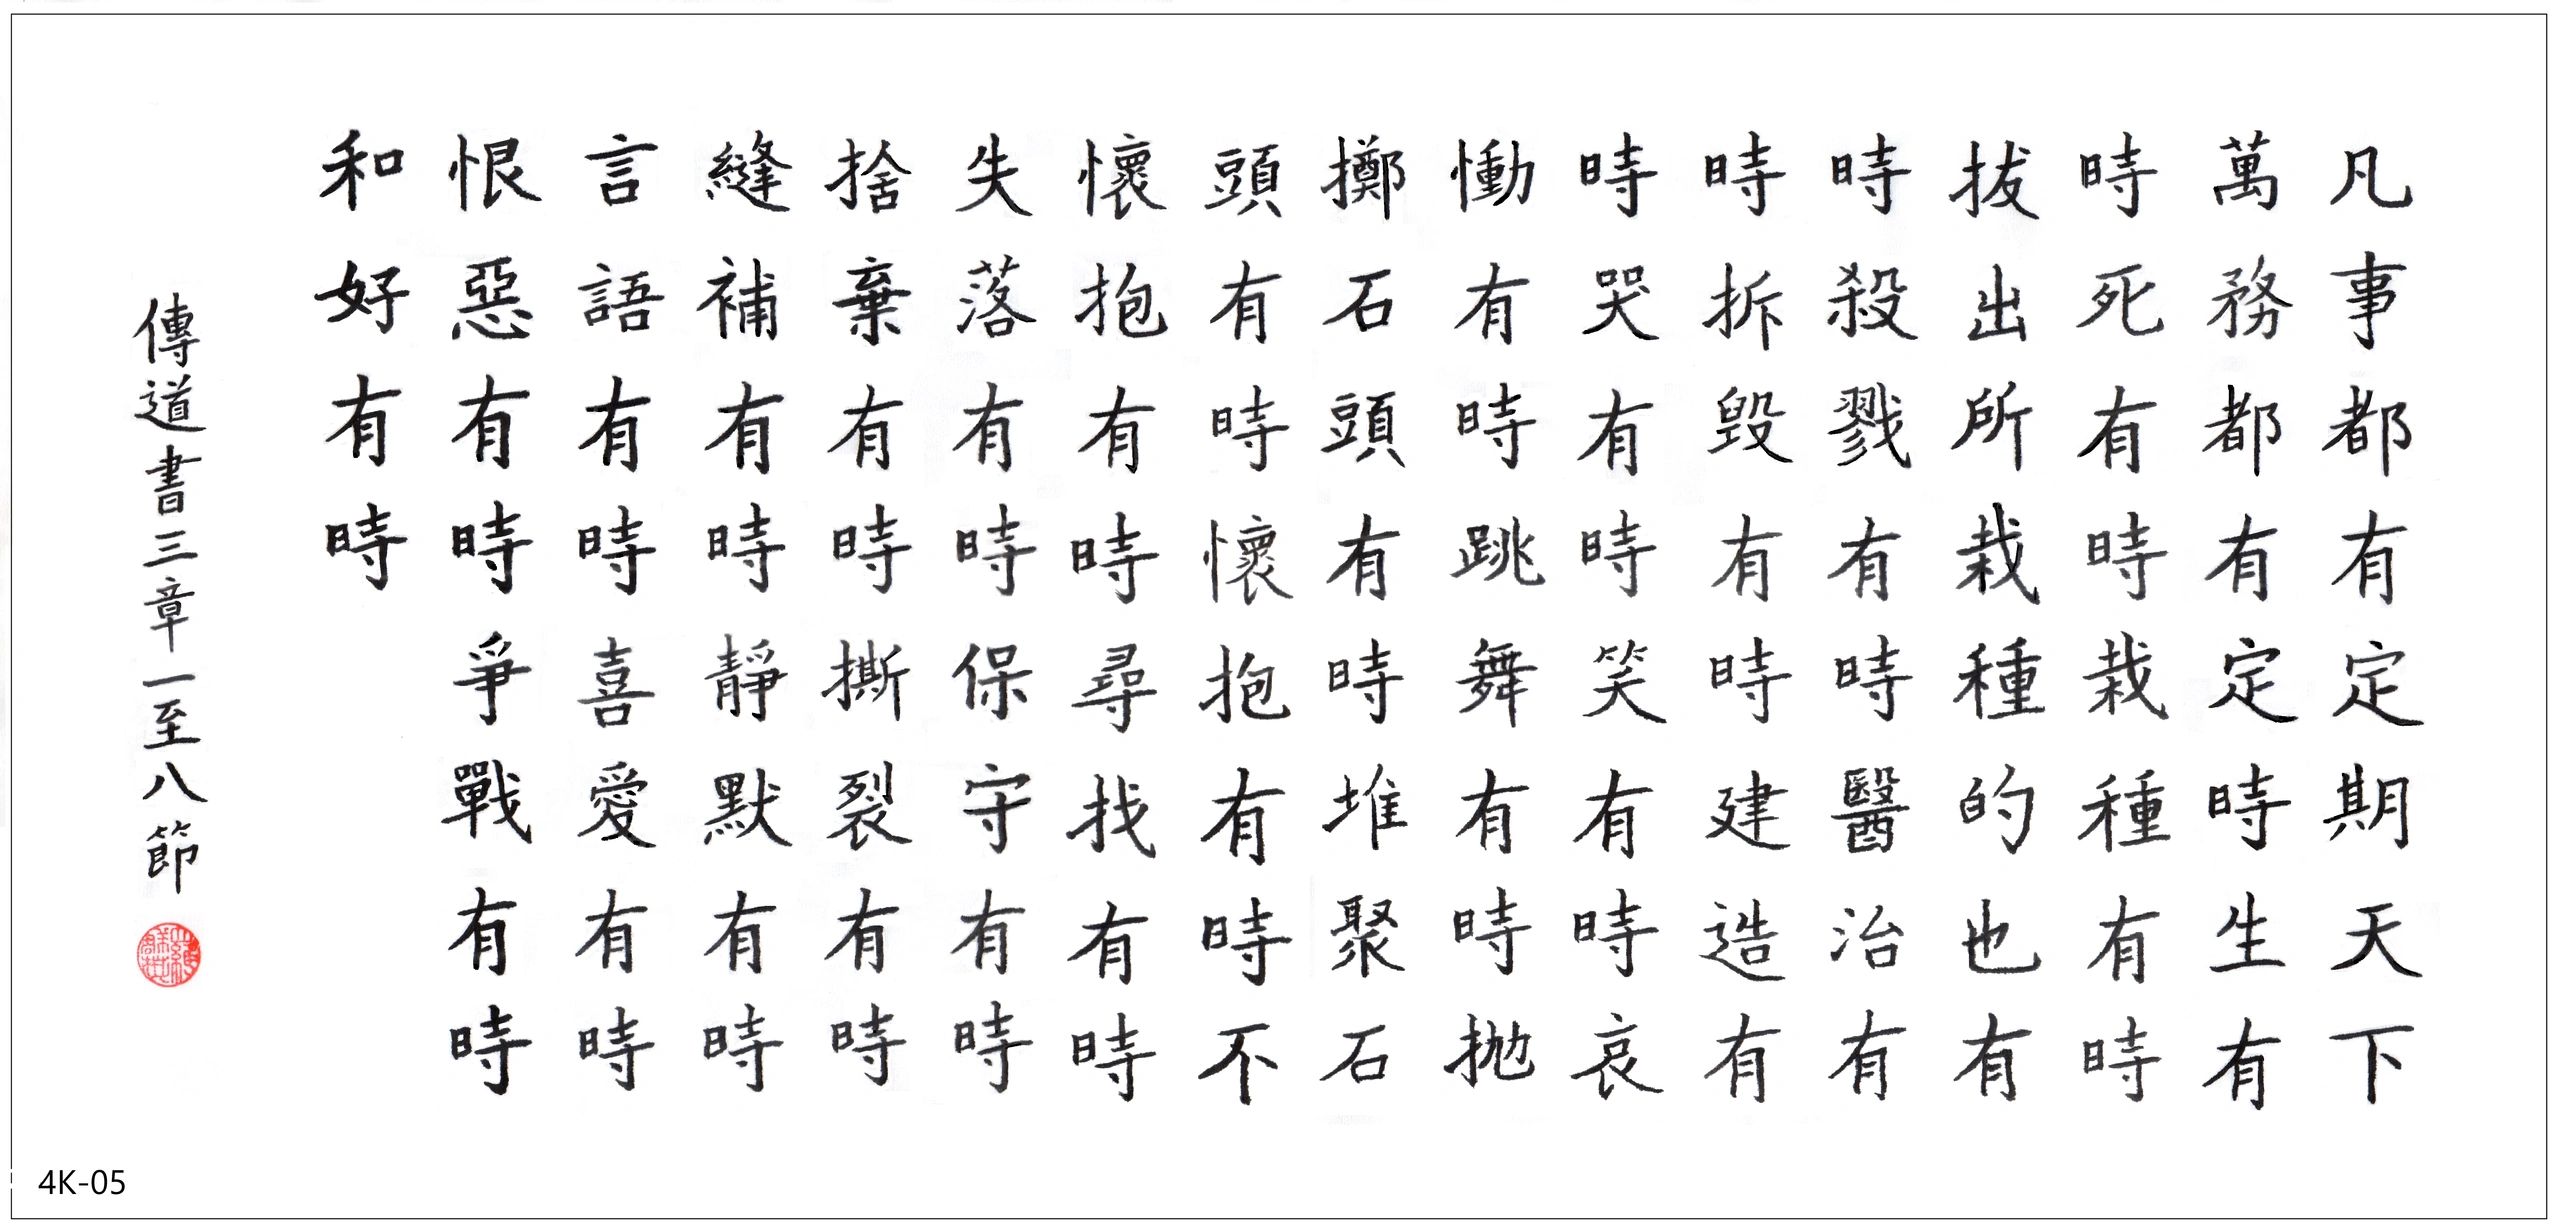 凡事都有定期天下
萬務都有定時生有
時死有時栽種有時
拔出所栽種的也有
時殺戮有時醫治有
時拆毀有時建造有
時哭有時笑有時哀
慟有時跳舞有時拋
擲石頭有時堆聚石
頭有時懷抱有時不
懷抱有時尋找有時
失落有時保守有時
捨棄有時撕裂有時
縫補有時靜默有時
言語有時喜愛有時
恨惡有時爭戰有時
和好有時
傳道書三章一至八節
4K-05